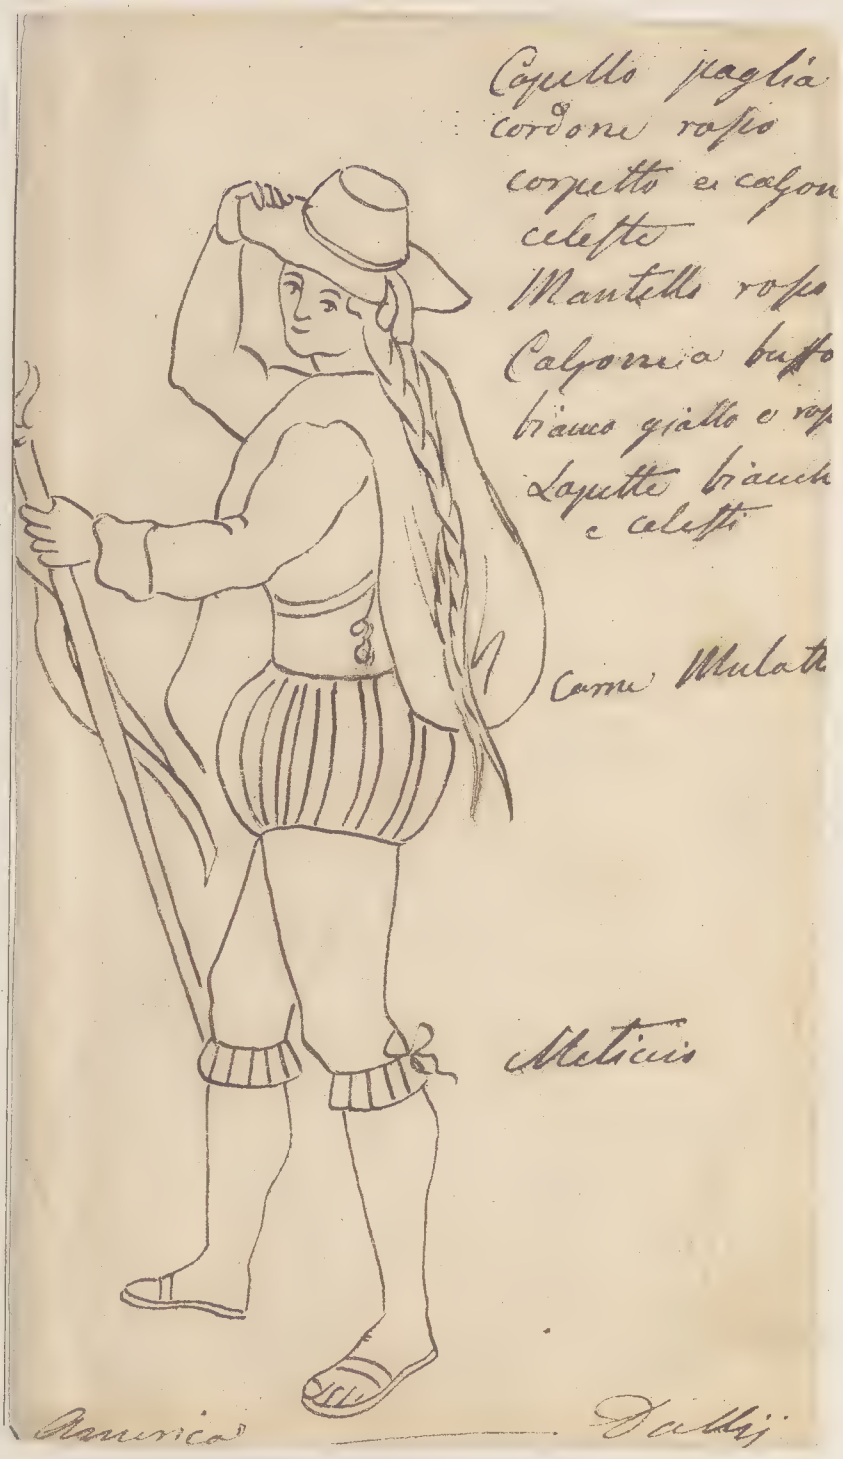 Capello paglia
cordone rosso
corpetto e calzon
celeste
Mantello rosso
Calzone a buffo
bianco giallo e ros
Lapette bianch
e celesti
Carne Mulatt
America